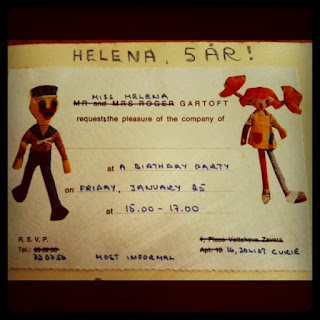 HELENA, 5 ÅR!
MISS HELENA
MR and MRS ROGER GARTOFT
requests the pleasure of the company of
at A BIRTHDAY PARTY
on FRIDAY, JANUARY 25
at 15.00 - 17.00
R. S. V. P.
1, Place Veltchova Zavera
Tel.:
Apt. 12 16, JOLIOT CURIE
720756 MOST INFORMAL